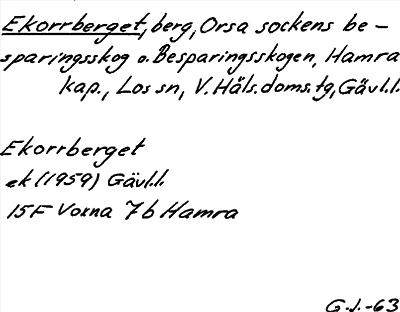 Ekorrberget, berg, Orsa sockens be-
sparingsskog o. Besparingsskogen, Hamra
kap., Los sn, V. Häls. doms. tg, Gävl.l.
Ekorrberget
ek (1959) Gävl.l.
15F Voxna 7b Hamra
G.J.-63